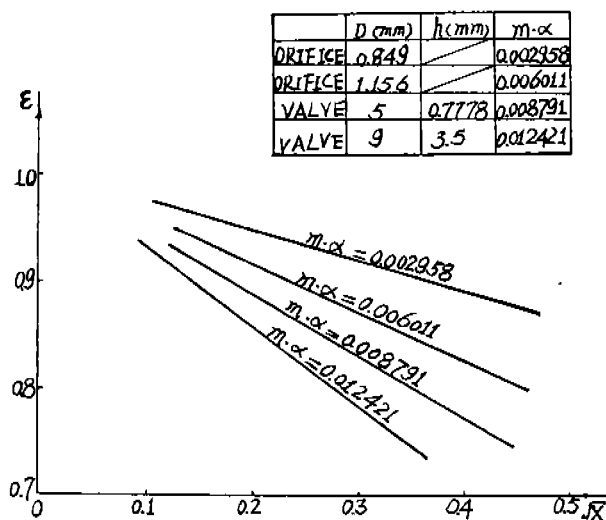 D (mm) h (mm) m·α
ORIFICE 0.849 0.002958
ORIFICE 1.156 0.006011
VALVE 5 0.7778 0.008791
VALVE 9 3.5 0.012421
ε
1.0
0.9
0.8
0.7
m·α = 0.002958
m·α = 0.006011
m·α = 0.008791
m·α = 0.012421
0 0.1 0.2 0.3 0.4 0.5 √X